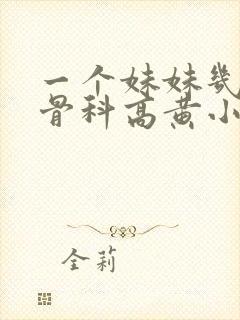 一个妹妹几
骨科高黄小
全莉